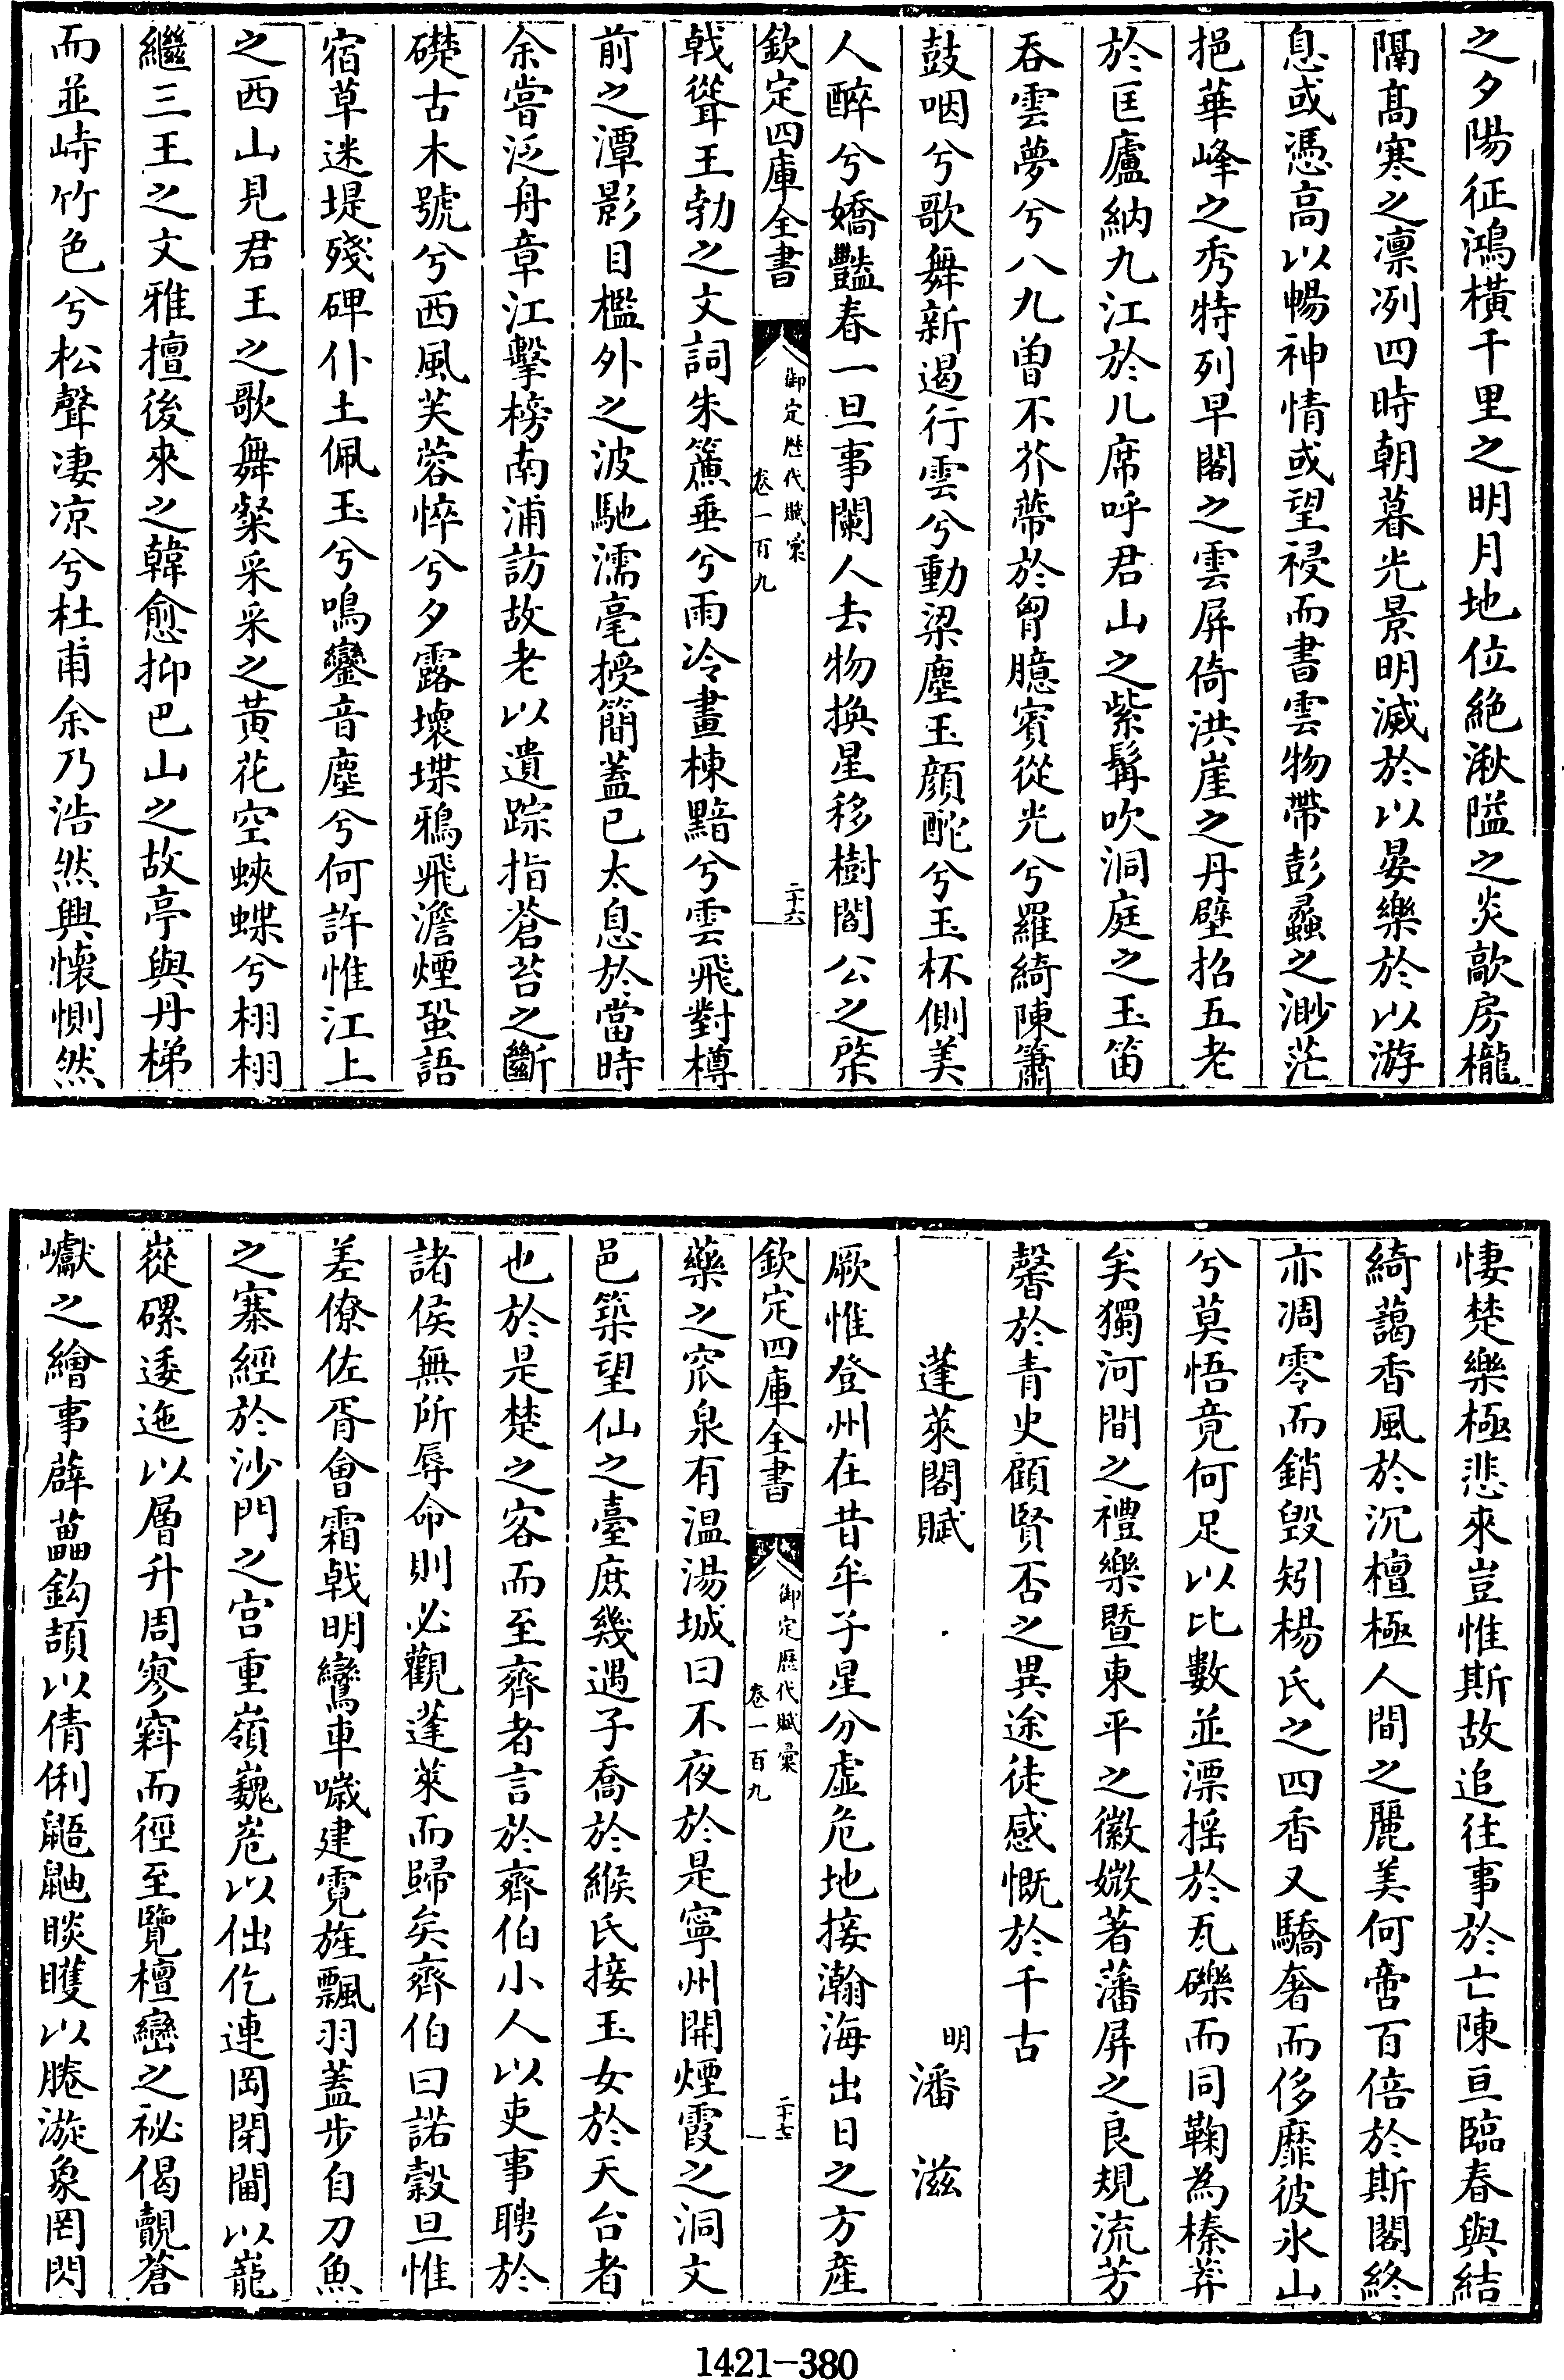 之夕陽征鴻橫千里之明月地位絶湫隘之炎歊房櫳
隔髙寒之凛冽四時朝暮光景明滅於以晏樂於以游
息或憑高以暢神情或望祲而書雲物帶彭蠡之渺茫
挹華峰之秀特列早閣之雲屏倚洪崖之丹壁招五老
於匡廬納九江於几席呼君山之紫髯吹洞庭之玉笛
吞雲夢兮八九曽不芥蔕於胷臆賓從光兮羅綺陳簫
鼓咽兮歌舞新遏行雲兮動梁塵玉顔酡兮玉杯側美
人醉兮嬌豔春一旦事闌人去物換星移樹閻公之棨
欽定四庫全書
御定歴代賦彙
卷一百九
二十六
戟聳王勃之文詞朱簾垂兮雨冷畫棟黯兮雲飛對樽
前之潭影目檻外之波馳濡毫授簡蓋已太息於當時
余嘗泛舟章江擊榜南浦訪故老以遺踪指蒼苔之斷
礎古木號兮西風芙蓉悴兮夕露壞堞鴉飛澹煙蛩語
宿草迷堤殘碑仆土佩玉兮鳴鑾音塵兮何許惟江上
之西山見君王之歌舞粲采采之黃花空蛺蝶兮栩栩
繼三王之文雅擅後來之韓愈抑巴山之故亭與丹梯
而並峙竹色兮松聲凄凉兮杜甫余乃浩然興懷惻然
悽楚樂極悲來豈惟斯故追往事於亡陳亘臨春與結
綺藹香風於沉檀極人間之麗美何啻百倍於斯閣終
亦凋零而銷毀矧楊氏之四香又驕奢而侈靡彼氷山
兮莫悟竟何足以比數並漂摇於瓦礫而同鞠為榛莽
矣獨河間之禮樂暨東平之徽媺著藩屏之良規流芳
馨於青史顧賢否之異途徒感慨於千古
蓬萊閣賦
明
潘滋
厥惟登州在昔牟子星分虚危地接瀚海出日之方産
欽定四庫全書
御定歴代賦彙
卷一百九
二十七
藥之窊泉有温湯城曰不夜於是寧州開煙霞之洞文
邑築望仙之臺庶幾遇子喬於緱氏接玉女於天台者
也於是楚之客而至齊者言於齊伯小人以吏事聘於
諸侯無所辱命則必觀蓬萊而歸矣齊伯曰諾穀旦惟
差僚佐胥會霜戟明鸞車噦建霓旌飄羽蓋步自刀魚
之寨經於沙門之宫重嶺巍嵬以倔仡連岡閉闔以巃
嵸磥逶迤以層升周寥窲而徑至覽檀巒之祕偈覿蒼
巘之繪事薜藟鈎頡以倩俐鼯鼬睒矆以腃漩象罔閃
1421-380